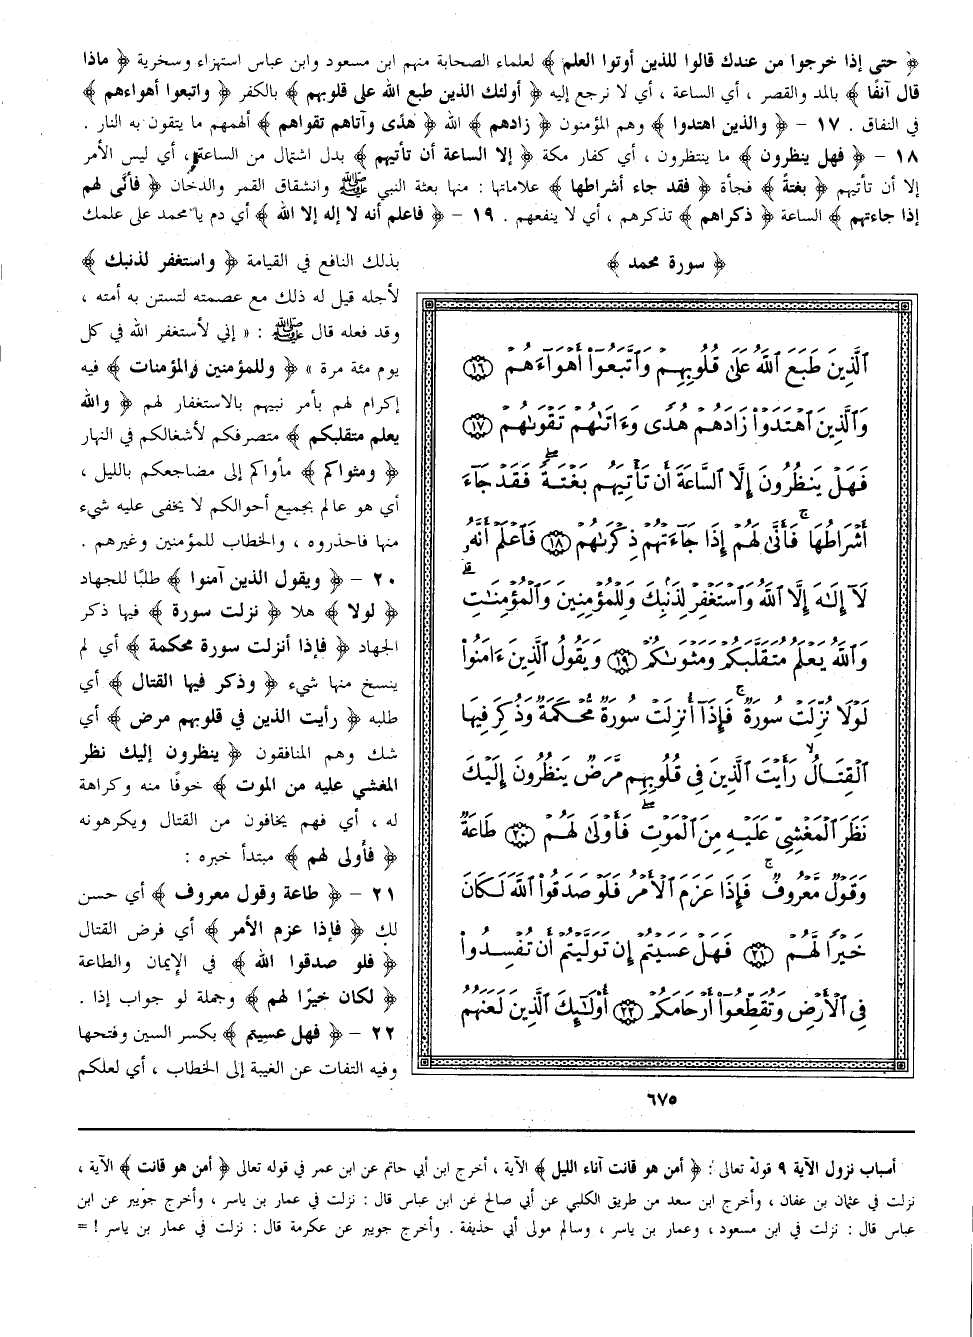 ﴿ حتى إذا خرجوا من عندك قالوا للذين أوتوا العلم ﴾ لعلماء الصحابة منهم ابن مسعود وابن عباس استهزاء وسخرية ﴿ ماذا
قال آنفًا ﴾ بالمد والقصر ، أي الساعة ، أي لا نرجع إليه ﴿ أولئك الذين طبع الله على قلوبهم ﴾ بالكفر ﴿ واتبعوا أهواءهم ﴾
في النفاق . ١٧ – ﴿ والذين اهتدوا ﴾ وهم المؤمنون ﴿ زادهم ﴾ الله ﴿ هدًى وآتاهم تقواهم ﴾ ألهمهم ما يتقون به النار .
١٨ – ﴿ فهل ينظرون ﴾ ما ينتظرون ، أي كفار مكة ﴿ إلا الساعة أن تأتيهم ﴾ بدل اشتمال من الساعة ، أي ليس الأمر
إلا أن تأتيهم ﴿ بغتةً ﴾ فجأة ﴿ فقد جاء أشراطها ﴾ علاماتها : منها بعثة النبي ﷺ وانشقاق القمر والدخان ﴿ فأنَّى لهم
إذا جاءتهم ﴾ الساعة ﴿ ذكراهم ﴾ تذكرهم ، أي لا ينفعهم . ١٩ – ﴿ فاعلم أنه لا إله إلا الله ﴾ أي دم يا محمد على علمك
بذلك النافع في القيامة ﴿ واستغفر لذنبك ﴾
لأجله قيل له ذلك مع عصمته لتستن به أمته ،
وقد فعله قال ﷺ : « إني لأستغفر الله في كل
يوم مئة مرة » ﴿ وللمؤمنين والمؤمنات ﴾ فيه
إكرام لهم بأمر نبيهم بالاستغفار لهم ﴿ والله
يعلم متقلبكم ﴾ متصرفكم لأشغالكم في النهار
﴿ ومثواكم ﴾ مأواكم إلى مضاجعكم بالليل ،
أي هو عالم بجميع أحوالكم لا يخفى عليه شيء
منها فاحذروه ، والخطاب للمؤمنين وغيرهم .
٢٠ – ﴿ ويقول الذين آمنوا ﴾ طلبًا للجهاد
﴿ لولا ﴾ هلا ﴿ نزلت سورة ﴾ فيها ذكر
الجهاد ﴿ فإذا أنزلت سورة محكمة ﴾ أي لم
ينسخ منها شيء ﴿ وذكر فيها القتال ﴾ أي
طلبه ﴿ رأيت الذين في قلوبهم مرض ﴾ أي
شك وهم المنافقون ﴿ ينظرون إليك نظر
المغشي عليه من الموت ﴾ خوفًا منه وكراهة
له ، أي فهم يخافون من القتال ويكرهونه
﴿ فأولى لهم ﴾ مبتدأ خبره :
٢١ – ﴿ طاعة وقول معروف ﴾ أي حسن
لك ﴿ فإذا عزم الأمر ﴾ أي فرض القتال
﴿ فلو صدقوا الله ﴾ في الإيمان والطاعة
﴿ لكان خيرًا لهم ﴾ وجملة لو جواب إذا .
٢٢ – ﴿ فهل عسيتم ﴾ بكسر السين وفتحها
وفيه التفات عن الغيبة إلى الخطاب ، أي لعلكم
﴿ سورة محمد ﴾
ٱلَّذِينَ طَبَعَ ٱللَّهُ عَلَىٰ قُلُوبِهِمْ وَٱتَّبَعُوٓا۟ أَهْوَآءَهُمْ ١٦
وَٱلَّذِينَ ٱهْتَدَوْا۟ زَادَهُمْ هُدًى وَءَاتَىٰهُمْ تَقْوَىٰهُمْ ١٧
فَهَلْ يَنظُرُونَ إِلَّا ٱلسَّاعَةَ أَن تَأْتِيَهُم بَغْتَةً ۖ فَقَدْ جَآءَ
أَشْرَاطُهَا ۚ فَأَنَّىٰ لَهُمْ إِذَا جَآءَتْهُمْ ذِكْرَىٰهُمْ ١٨ فَٱعْلَمْ أَنَّهُۥ
لَآ إِلَٰهَ إِلَّا ٱللَّهُ وَٱسْتَغْفِرْ لِذَنۢبِكَ وَلِلْمُؤْمِنِينَ وَٱلْمُؤْمِنَٰتِ ۗ
وَٱللَّهُ يَعْلَمُ مُتَقَلَّبَكُمْ وَمَثْوَىٰكُمْ ١٩ وَيَقُولُ ٱلَّذِينَ ءَامَنُوا۟
لَوْلَا نُزِّلَتْ سُورَةٌ ۖ فَإِذَآ أُنزِلَتْ سُورَةٌ مُّحْكَمَةٌ وَذُكِرَ فِيهَا
ٱلْقِتَالُ ۙ رَأَيْتَ ٱلَّذِينَ فِى قُلُوبِهِم مَّرَضٌ يَنظُرُونَ إِلَيْكَ
نَظَرَ ٱلْمَغْشِىِّ عَلَيْهِ مِنَ ٱلْمَوْتِ ۖ فَأَوْلَىٰ لَهُمْ ٢٠ طَاعَةٌ
وَقَوْلٌ مَّعْرُوفٌ ۚ فَإِذَا عَزَمَ ٱلْأَمْرُ فَلَوْ صَدَقُوا۟ ٱللَّهَ لَكَانَ
خَيْرًا لَّهُمْ ٢١ فَهَلْ عَسَيْتُمْ إِن تَوَلَّيْتُمْ أَن تُفْسِدُوا۟
فِى ٱلْأَرْضِ وَتُقَطِّعُوٓا۟ أَرْحَامَكُمْ ٢٢ أُو۟لَٰٓئِكَ ٱلَّذِينَ لَعَنَهُمُ
٦٧٥
أسباب نزول الآية ٩ قوله تعالى : ﴿ أمن هو قانت آناء الليل ﴾ الآية ، أخرج ابن أبي حاتم عن ابن عمر في قوله تعالى ﴿ أمن هو قانت ﴾ الآية ،
نزلت في عثمان بن عفان ، وأخرج ابن سعد من طريق الكلبي عن أبي صالح عن ابن عباس قال : نزلت في عمار بن ياسر ، وأخرج جويبر عن ابن
عباس قال : نزلت في ابن مسعود ، وعمار بن ياسر ، وسالم مولى أبي حذيفة . وأخرج جويبر عن عكرمة قال : نزلت في عمار بن ياسر ! =